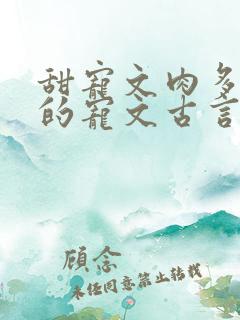 甜寵文肉多
的寵文古言
顾念
未经同意禁止转载